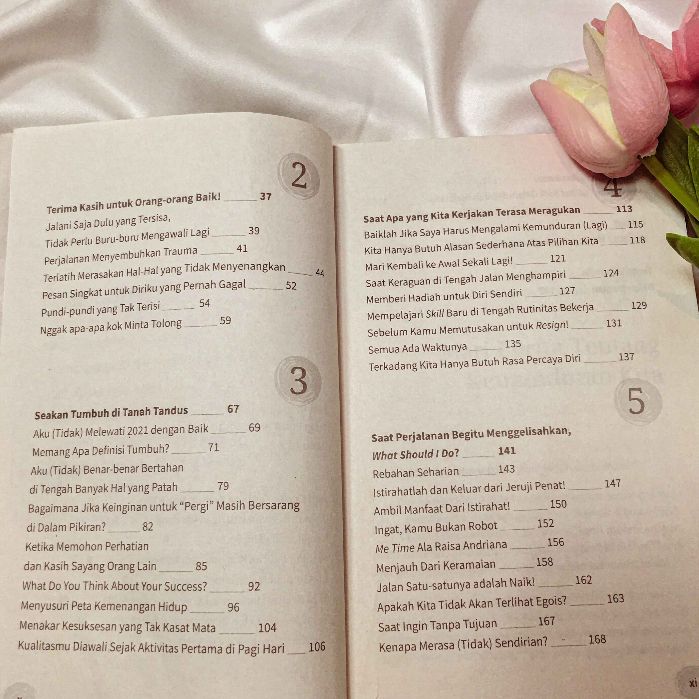 2
Terima Kasih untuk Orang-orang Baik! ______ 37
Jalani Saja Dulu yang Tersisa,
Tidak Perlu Buru-buru Mengawali Lagi ______ 39
Perjalanan Menyembuhkan Trauma ______ 41
Terlatih Merasakan Hal-Hal yang Tidak Menyenangkan ______ 44
Pesan Singkat untuk Diriku yang Pernah Gagal ______ 52
Pundi-pundi yang Tak Terisi ______ 54
Nggak apa-apa kok Minta Tolong ______ 59
3
Seakan Tumbuh di Tanah Tandus ______ 67
Aku (Tidak) Melewati 2021 dengan Baik ______ 69
Memang Apa Definisi Tumbuh? ______ 71
Aku (Tidak) Benar-benar Bertahan
di Tengah Banyak Hal yang Patah ______ 79
Bagaimana Jika Keinginan untuk "Pergi" Masih Bersarang
di Dalam Pikiran? ______ 82
Ketika Memohon Perhatian
dan Kasih Sayang Orang Lain ______ 85
What Do You Think About Your Success? ______ 92
Menyusuri Peta Kemenangan Hidup ______ 96
Menakar Kesuksesan yang Tak Kasat Mata ______ 104
Kualitasmu Diawali Sejak Aktivitas Pertama di Pagi Hari ___ 106
4
Saat Apa yang Kita Kerjakan Terasa Meragukan ______ 113
Baiklah Jika Saya Harus Mengalami Kemunduran (Lagi) ___ 115
Kita Hanya Butuh Alasan Sederhana Atas Pilihan Kita ______ 118
Mari Kembali ke Awal Sekali Lagi! ______ 121
Saat Keraguan di Tengah Jalan Menghampiri ______ 124
Memberi Hadiah untuk Diri Sendiri ______ 127
Mempelajari Skill Baru di Tengah Rutinitas Bekerja ______ 129
Sebelum Kamu Memutusakan untuk Resign! ______ 131
Semua Ada Waktunya ______ 135
Terkadang Kita Hanya Butuh Rasa Percaya Diri ______ 137
5
Saat Perjalanan Begitu Menggelisahkan,
What Should I Do? ______ 141
Rebahan Seharian ______ 143
Istirahatlah dan Keluar dari Jeruji Penat! ______ 147
Ambil Manfaat Dari Istirahat! ______ 150
Ingat, Kamu Bukan Robot ______ 152
Me Time Ala Raisa Andriana ______ 156
Menjauh Dari Keramaian ______ 158
Jalan Satu-satunya adalah Naik! ______ 162
Apakah Kita Tidak Akan Terlihat Egois? ______ 163
Saat Ingin Tanpa Tujuan ______ 167
Kenapa Merasa (Tidak) Sendirian? ______ 168
xi